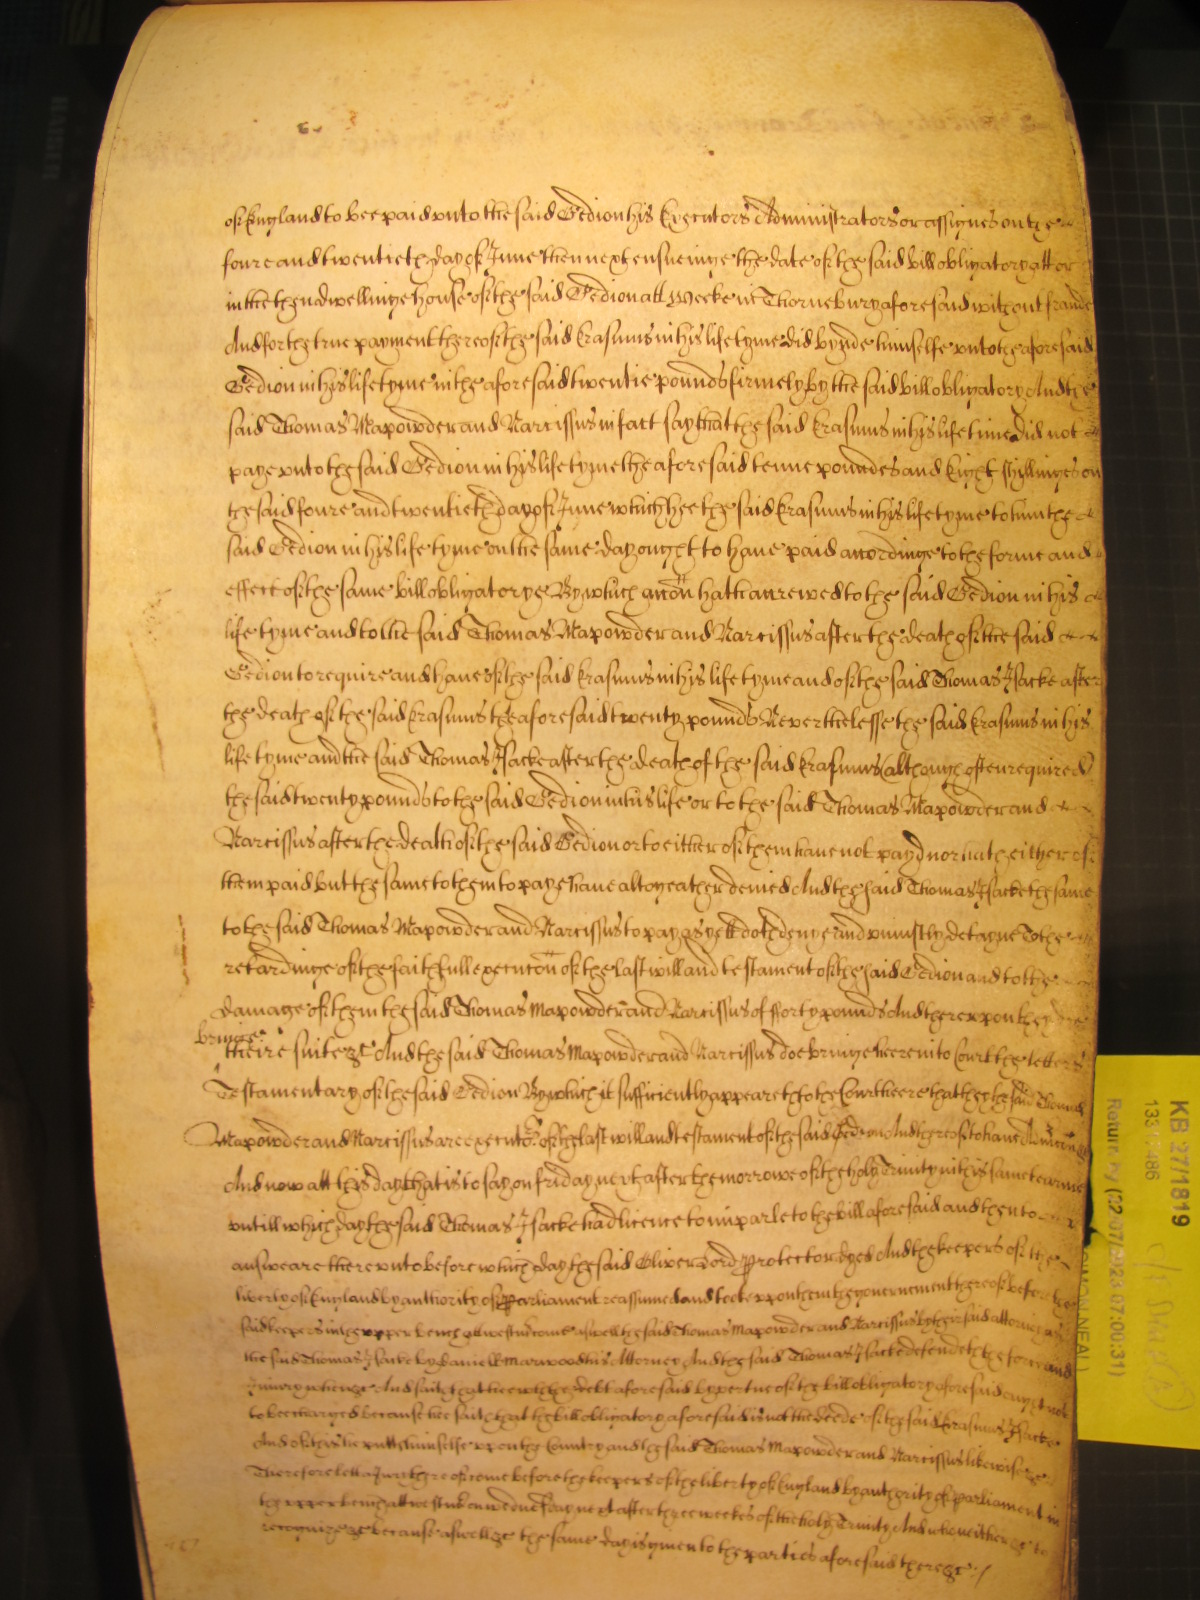 of England to bee paid unto the said Gedion his Executors Administrators or assignes on the
foure and twentieth day of June then next ensueinge the date of the said bill obligatory att or
in the then dwellinge house of the said Gedion att Weeke in Thorneburye aforesaid without fraude
And for the true payment thereof the said Erasmus in his life tyme did bynde himselfe unto the aforesaid
Gedion in his life tyme in the aforesaid twentie pounds firmely by the said bill obligatory And the
said Thomas Mapowder and Narcissus in fact say that the said Erasmus in his life time did not
paye unto the said Gedion in his life tyme the aforesaid tenne poundes and Eight shillinges on
the said foure and twentieth day of June which hee the said Erasmus in his life tyme to him the
said Gedion in his life tyme on the same day ought to have paid accordinge to the forme and
effect of the same bill obligatorye By which accon hath accrewed to the said Gedion in his
life tyme and to the said Thomas Mapowder and Narcissus after the death of the said
Gedion to require and have of the said Erasmus in his life tyme and of the said Thomas Isacke after
the death of the said Erasmus the aforesaid twenty pounds Neverthelesse the said Erasmus in his
life tyme and the said Thomas Isacke after the death of the said Erasmus (although often required)
the said twenty pounds to the said Gedion in his life or to the said Thomas Mapowder and
Narcissus after the death of the said Gedion or to either of them have not payd nor hath either of
them paid but the same to them to paye have altogeather denied And the said Thomas Isacke the same
to the said Thomas Mapowder and Narcissus to pay as yett doth denye and uniustly detayne To the
retardinge of the faithfull execucon of the last will and testament of the said Gedion and to the
damage of them the said Thomas Mapowder and Narcissus of fforty pounds And thereupon they
bringe
theire suite &c And the said Thomas Mapowder and Narcissus doe bringe heere into Court the letters
Testamentary of the said Gedion By which it sufficiently appeareth to the Court heere that they the said Thomas
Mapowder and Narcissus are executors of the last will and testament of the said Gedion And thereof to have
And now att this day that is to say on friday next after the morrowe of the holy Trinity in this same tearme
untill which day the said Thomas Isacke had licence to imparle to the bill aforesaid and then to
answeare thereunto before which day the said Oliver Lord Protector dyed And the keepers of the
liberty of England by authority of Parliament reassumed and tooke uppon them the governement thereof before the
said keepers in the upper bench att westm come aswell the said Thomas Mapowder and Narcissus by their said attorney as
the said Thomas Isacke by Daniell Marwood his Attorney And the said Thomas Isacke defendeth the force and
Iniury when &c And saith that hee with the debt aforesaid by vertue of the bill obligatory aforesaid ought not
to bee charged because hee saith that the bill obligatory aforesaid is not the deede of the said Erasmus Isacke
And of this hee putts himselfe uppon the Country and the said Thomas Mapowder and Narcissus likewise
Therefore lett a Jury thereof come before the keepers of the liberty of England by authority of Parliament in
the upper bench att westm on wednesday next after three weekes of the holy Trinity And who neither &c to
recognize &c because aswell &c the same day is given to the parties aforesaid there &c /
KB 27/1819
Return by (22/07/2023 07:00:31)
SIMON NEAL